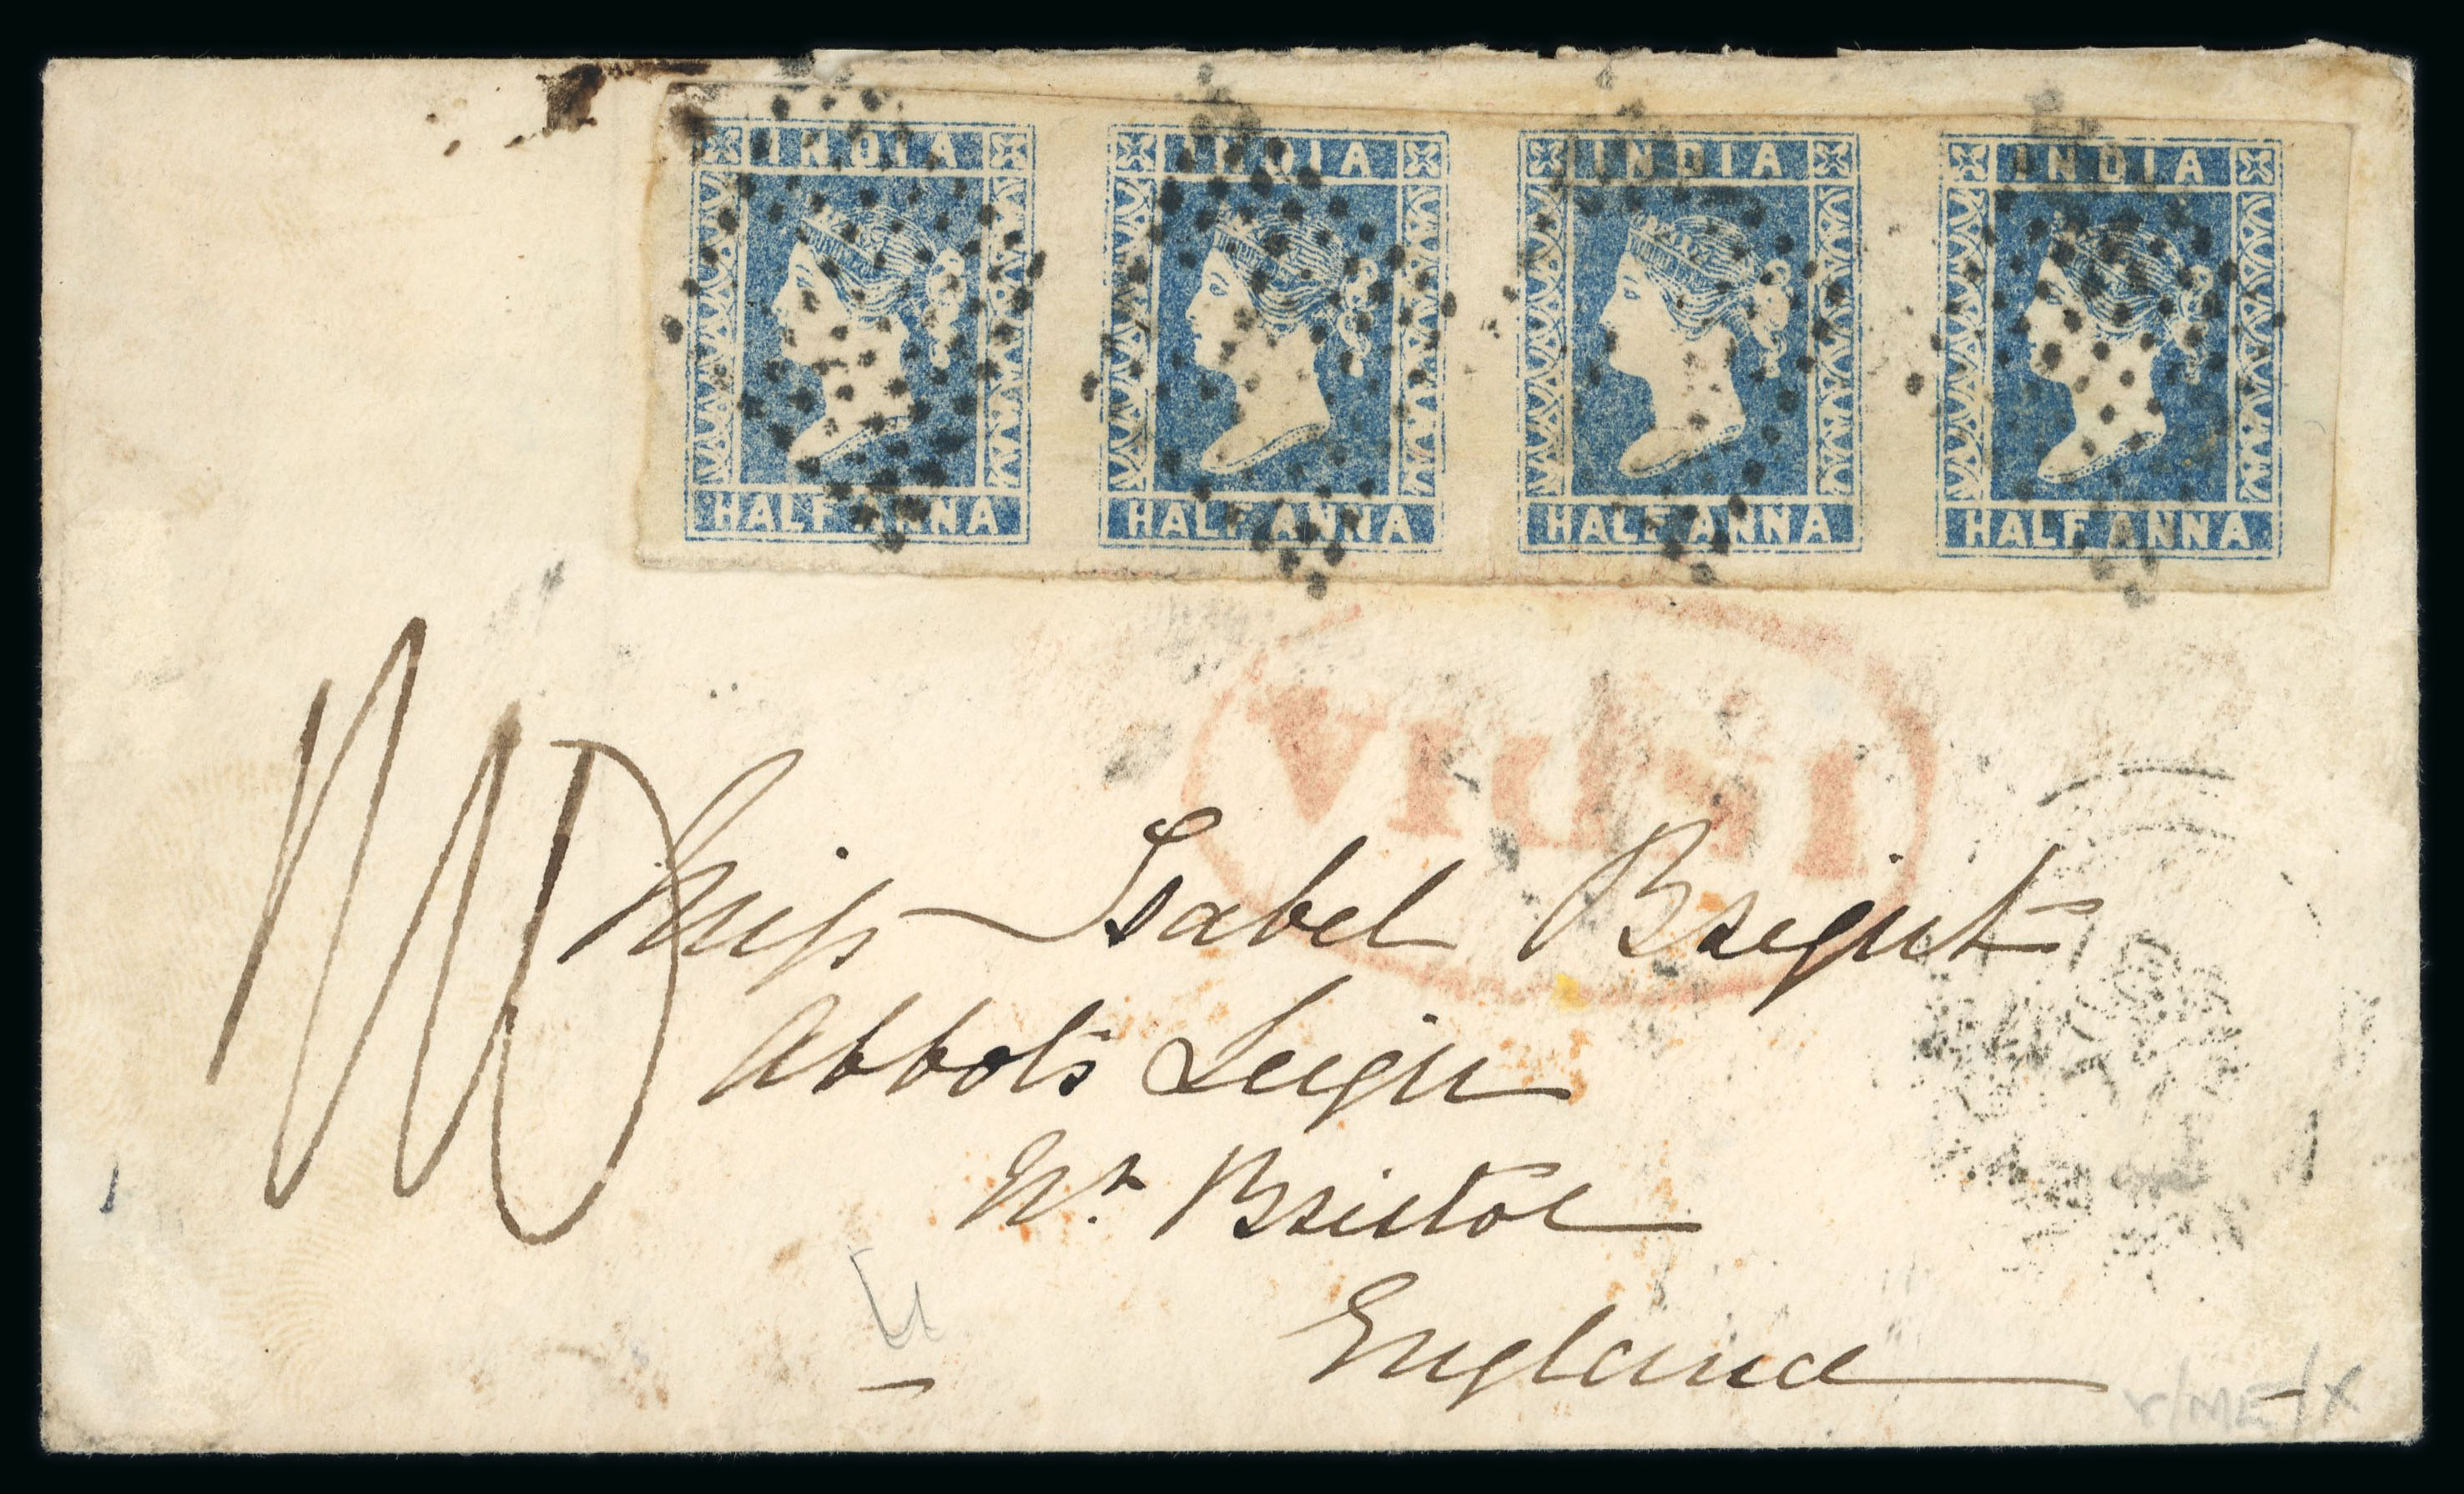 INDIA INDIA INDIA INDIA
HALF ANNA HALF ANNA HALF ANNA HALF ANNA
INDIA
Miss Isabel Bright
Abbots Leigh
Nr. Bristol
England